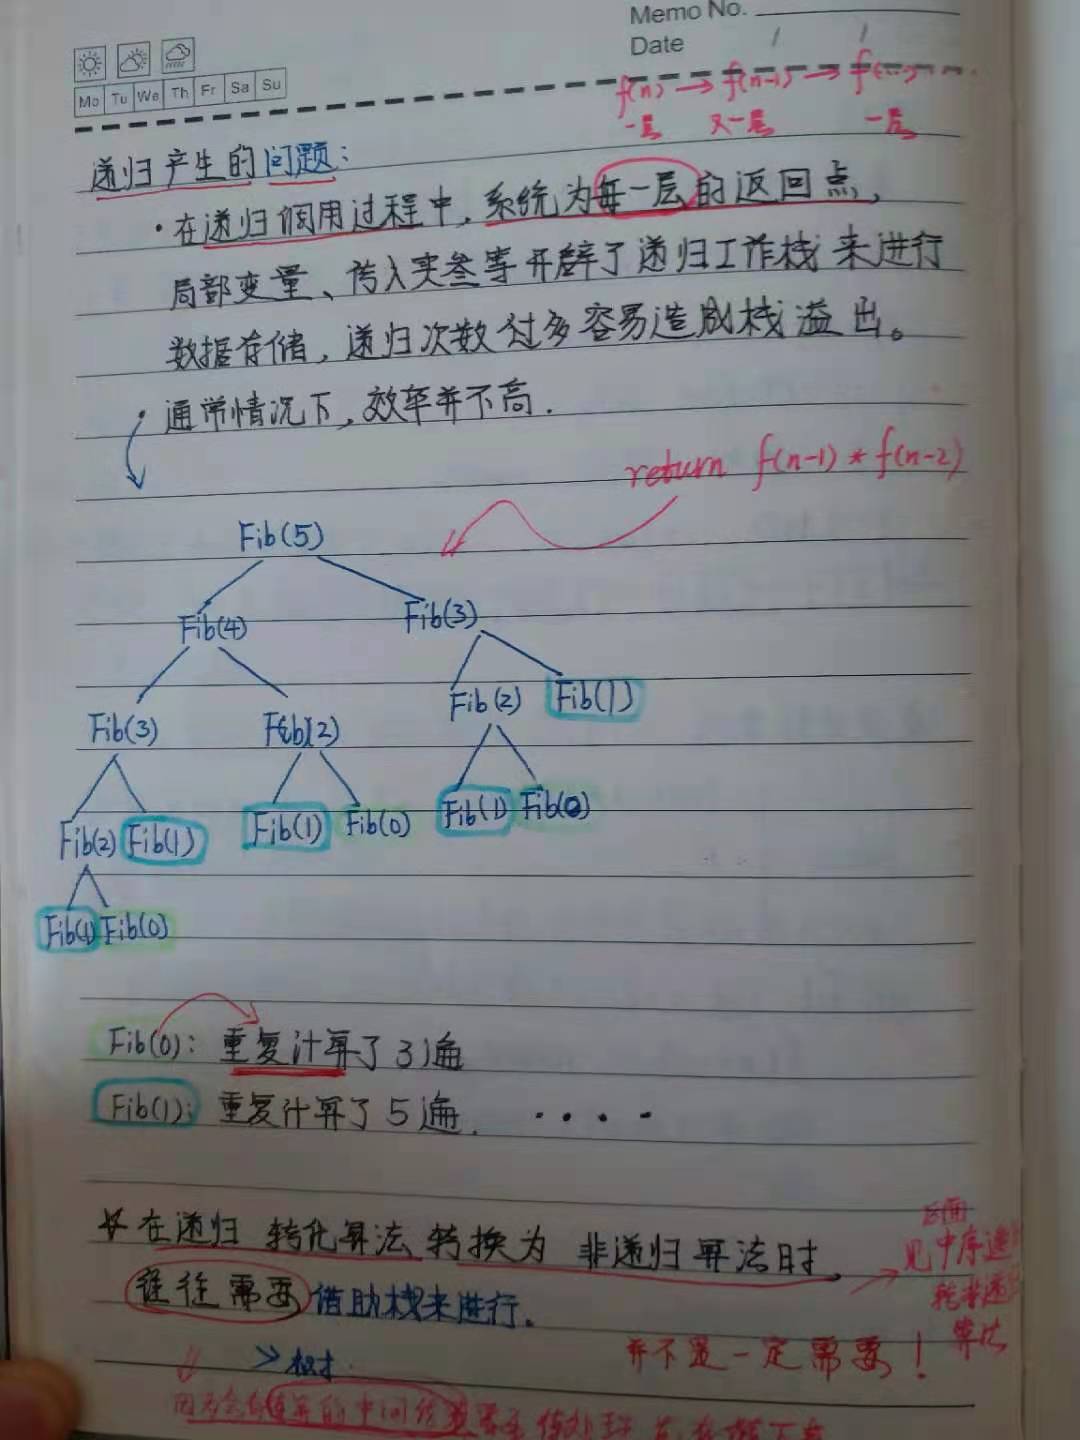 Memo No.
Date / /
Mo Tu We Th Fr Sa Su
f(n) → f(n-1) → f(…)
一层 又一层 一层
递归产生的问题:
·在递归调用过程中,系统为每一层的返回点,
局部变量、传入实参等开辟了递归工作栈来进行
数据存储,递归次数过多容易造成栈溢出。
·通常情况下,效率并不高.
return f(n-1)*f(n-2)
Fib(5)
Fib(4) Fib(3)
Fib(3) Fib(2) Fib(2) Fib(1)
Fib(2) Fib(1) Fib(1) Fib(0) Fib(1) Fib(0)
Fib(1) Fib(0)
Fib(0): 重复计算了3遍
Fib(1): 重复计算了5遍. ····
在递归 转化算法 转换为 非递归算法时,
往往需要 借助栈来进行.
后面
见中序遍
转非递
算法
并不是一定需要!
的中间结